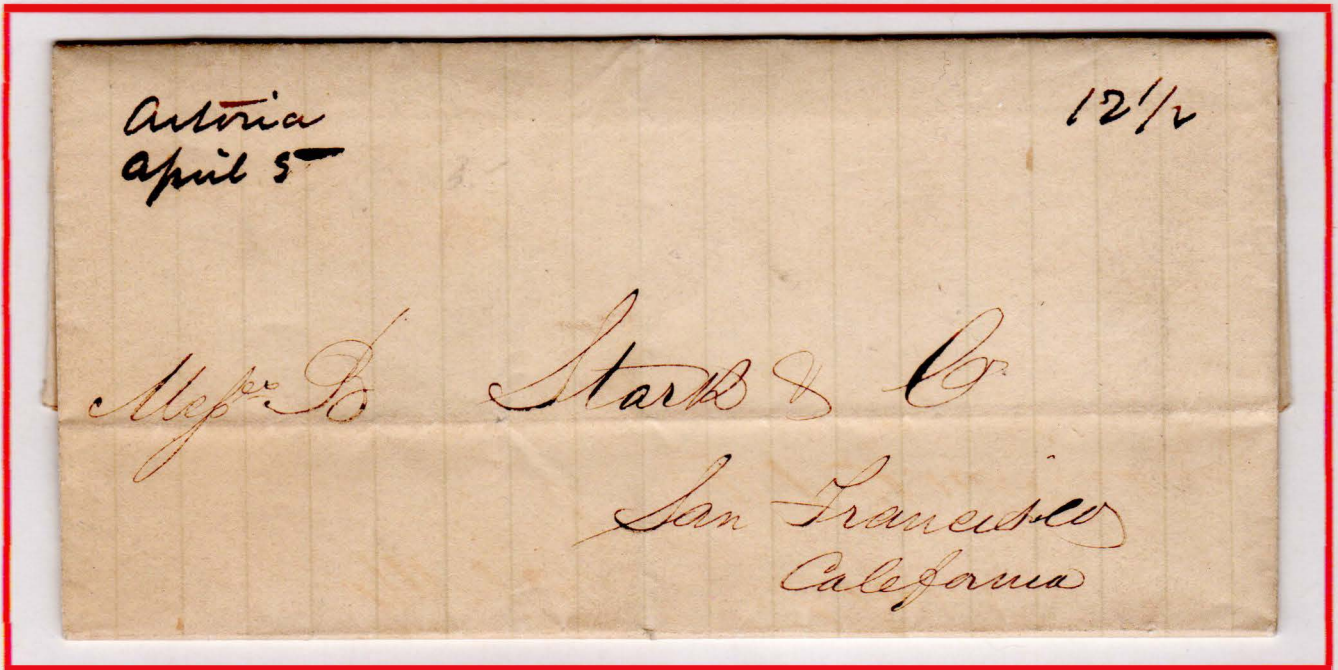 Astoria
April 5
12 1/2
Messrs B Stark & Co
San Francisco
California